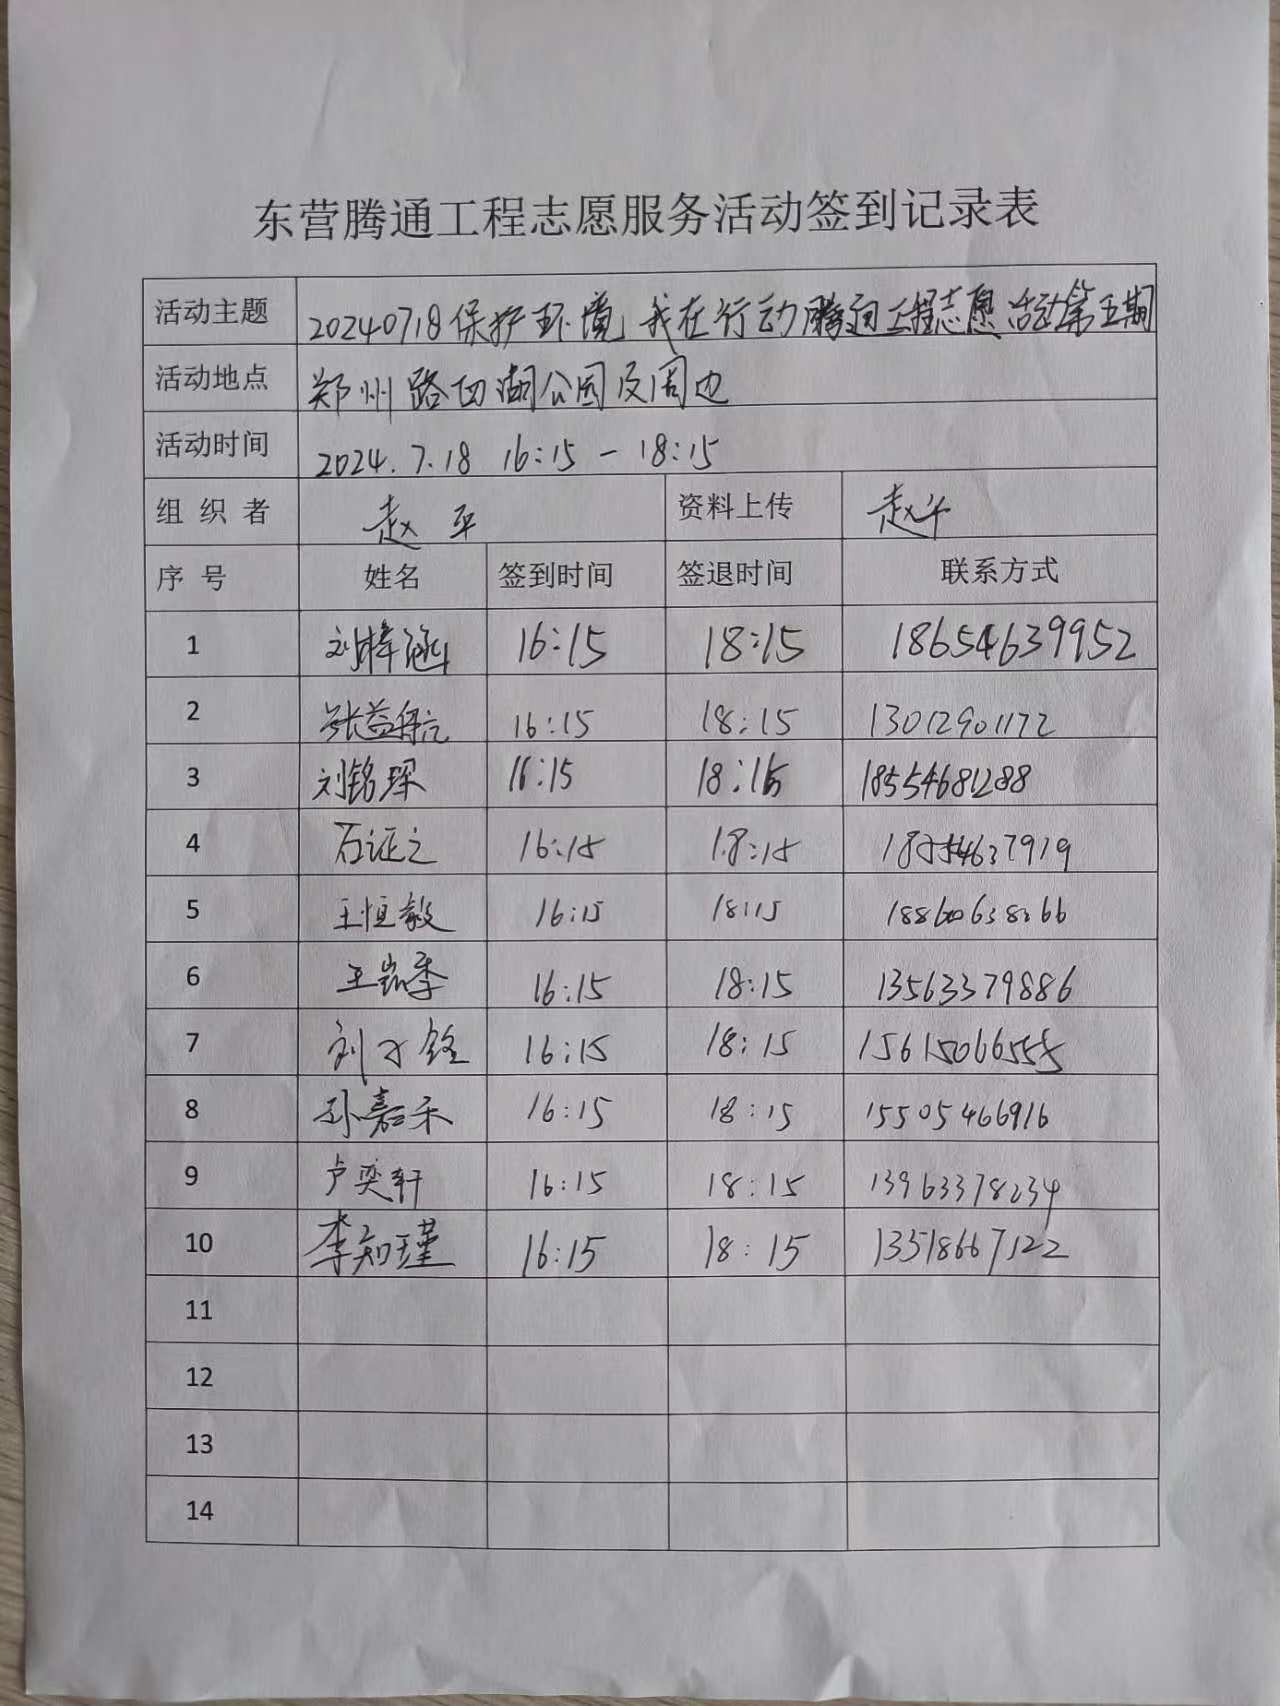 东营腾通工程志愿服务活动签到记录表
活动主题 20240718保护环境,我在行动腾通工程志愿活动第五期
活动地点 郑州路切湖公园及周边
活动时间 2024.7.18 16:15-18:15
组织者 赵平 资料上传 赵平
序号 姓名 签到时间 签退时间 联系方式
1 刘梓涵 16:15 18:15 18654639952
2 张益航 16:15 18:15 13012901172
3 刘铭琛 16:15 18:15 18554681288
4 石证之 16:15 18:15 18254637919
5 王恒毅 16:15 18:15
6 王凯季 16:15 18:15 13563379886
7 刘才铨 16:15 18:15 15615066555
8 孙嘉禾 16:15 18:15 15505466916
9 卢奕轩 16:15 18:15 13963378234
10 李知瑾 16:15 18:15 13518667122
11
12
13
14